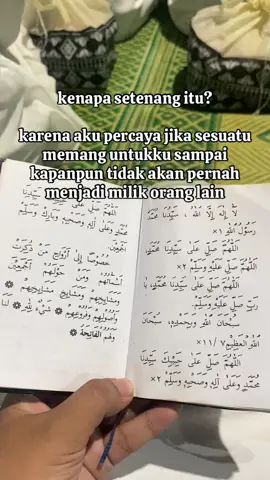 kenapa setenang itu?
karena aku percaya jika sesuatu
memang untukku sampai
kapanpun tidak akan pernah
menjadi milik orang lain
لَا إِلٰهَ إِلَّا اللهُ، سَيِّدُنَا مُحَمَّدٌ
رَسُوْلُ اللهِ ×١
اَللّٰهُمَّ صَلِّ عَلَى سَيِّدِنَا مُحَمَّدٍ،
اَللّٰهُمَّ صَلِّ عَلَيْهِ وَسَلِّمْ ×٢
اَللّٰهُمَّ صَلِّ عَلَى سَيِّدِنَا مُحَمَّدٍ، يَا
رَبِّ صَلِّ عَلَيْهِ وَسَلِّمْ
سُبْحَانَ اللهِ وَبِحَمْدِهِ، سُبْحَانَ
اللهِ الْعَظِيْمِ ٧/×١١
اَللّٰهُمَّ صَلِّ عَلَى حَبِيْبِكَ سَيِّدِنَا
مُحَمَّدٍ وَعَلَى آلِهِ وَصَحْبِهِ وَسَلِّمْ ×٢
اَللّٰهُمَّ صَلِّ عَلَى سَيِّدِنَا
مُحَمَّدٍ وَعَلَى آلِهِ وَصَحْبِهِ وَبَارِكْ وَسَلِّمْ
أَجْمَعِيْنَ
خُصُوْصًا إِلَى أَرْوَاحِ مَنْ ذُكِرَتْ
أَسْمَائُهُمْ وَمَنْ حَوْلَهُمْ أَجْمَعِيْنَ
وَمَشَايِخِهِمْ وَمَشَايِخِ مَشَايِخِهِمْ
وَأُصُوْلِهِمْ وَفُرُوْعِهِمْ ۞ شَيْءٌ لِلّٰهِ لَنَا
وَلَهُمُ الْفَاتِحَةُ ۞